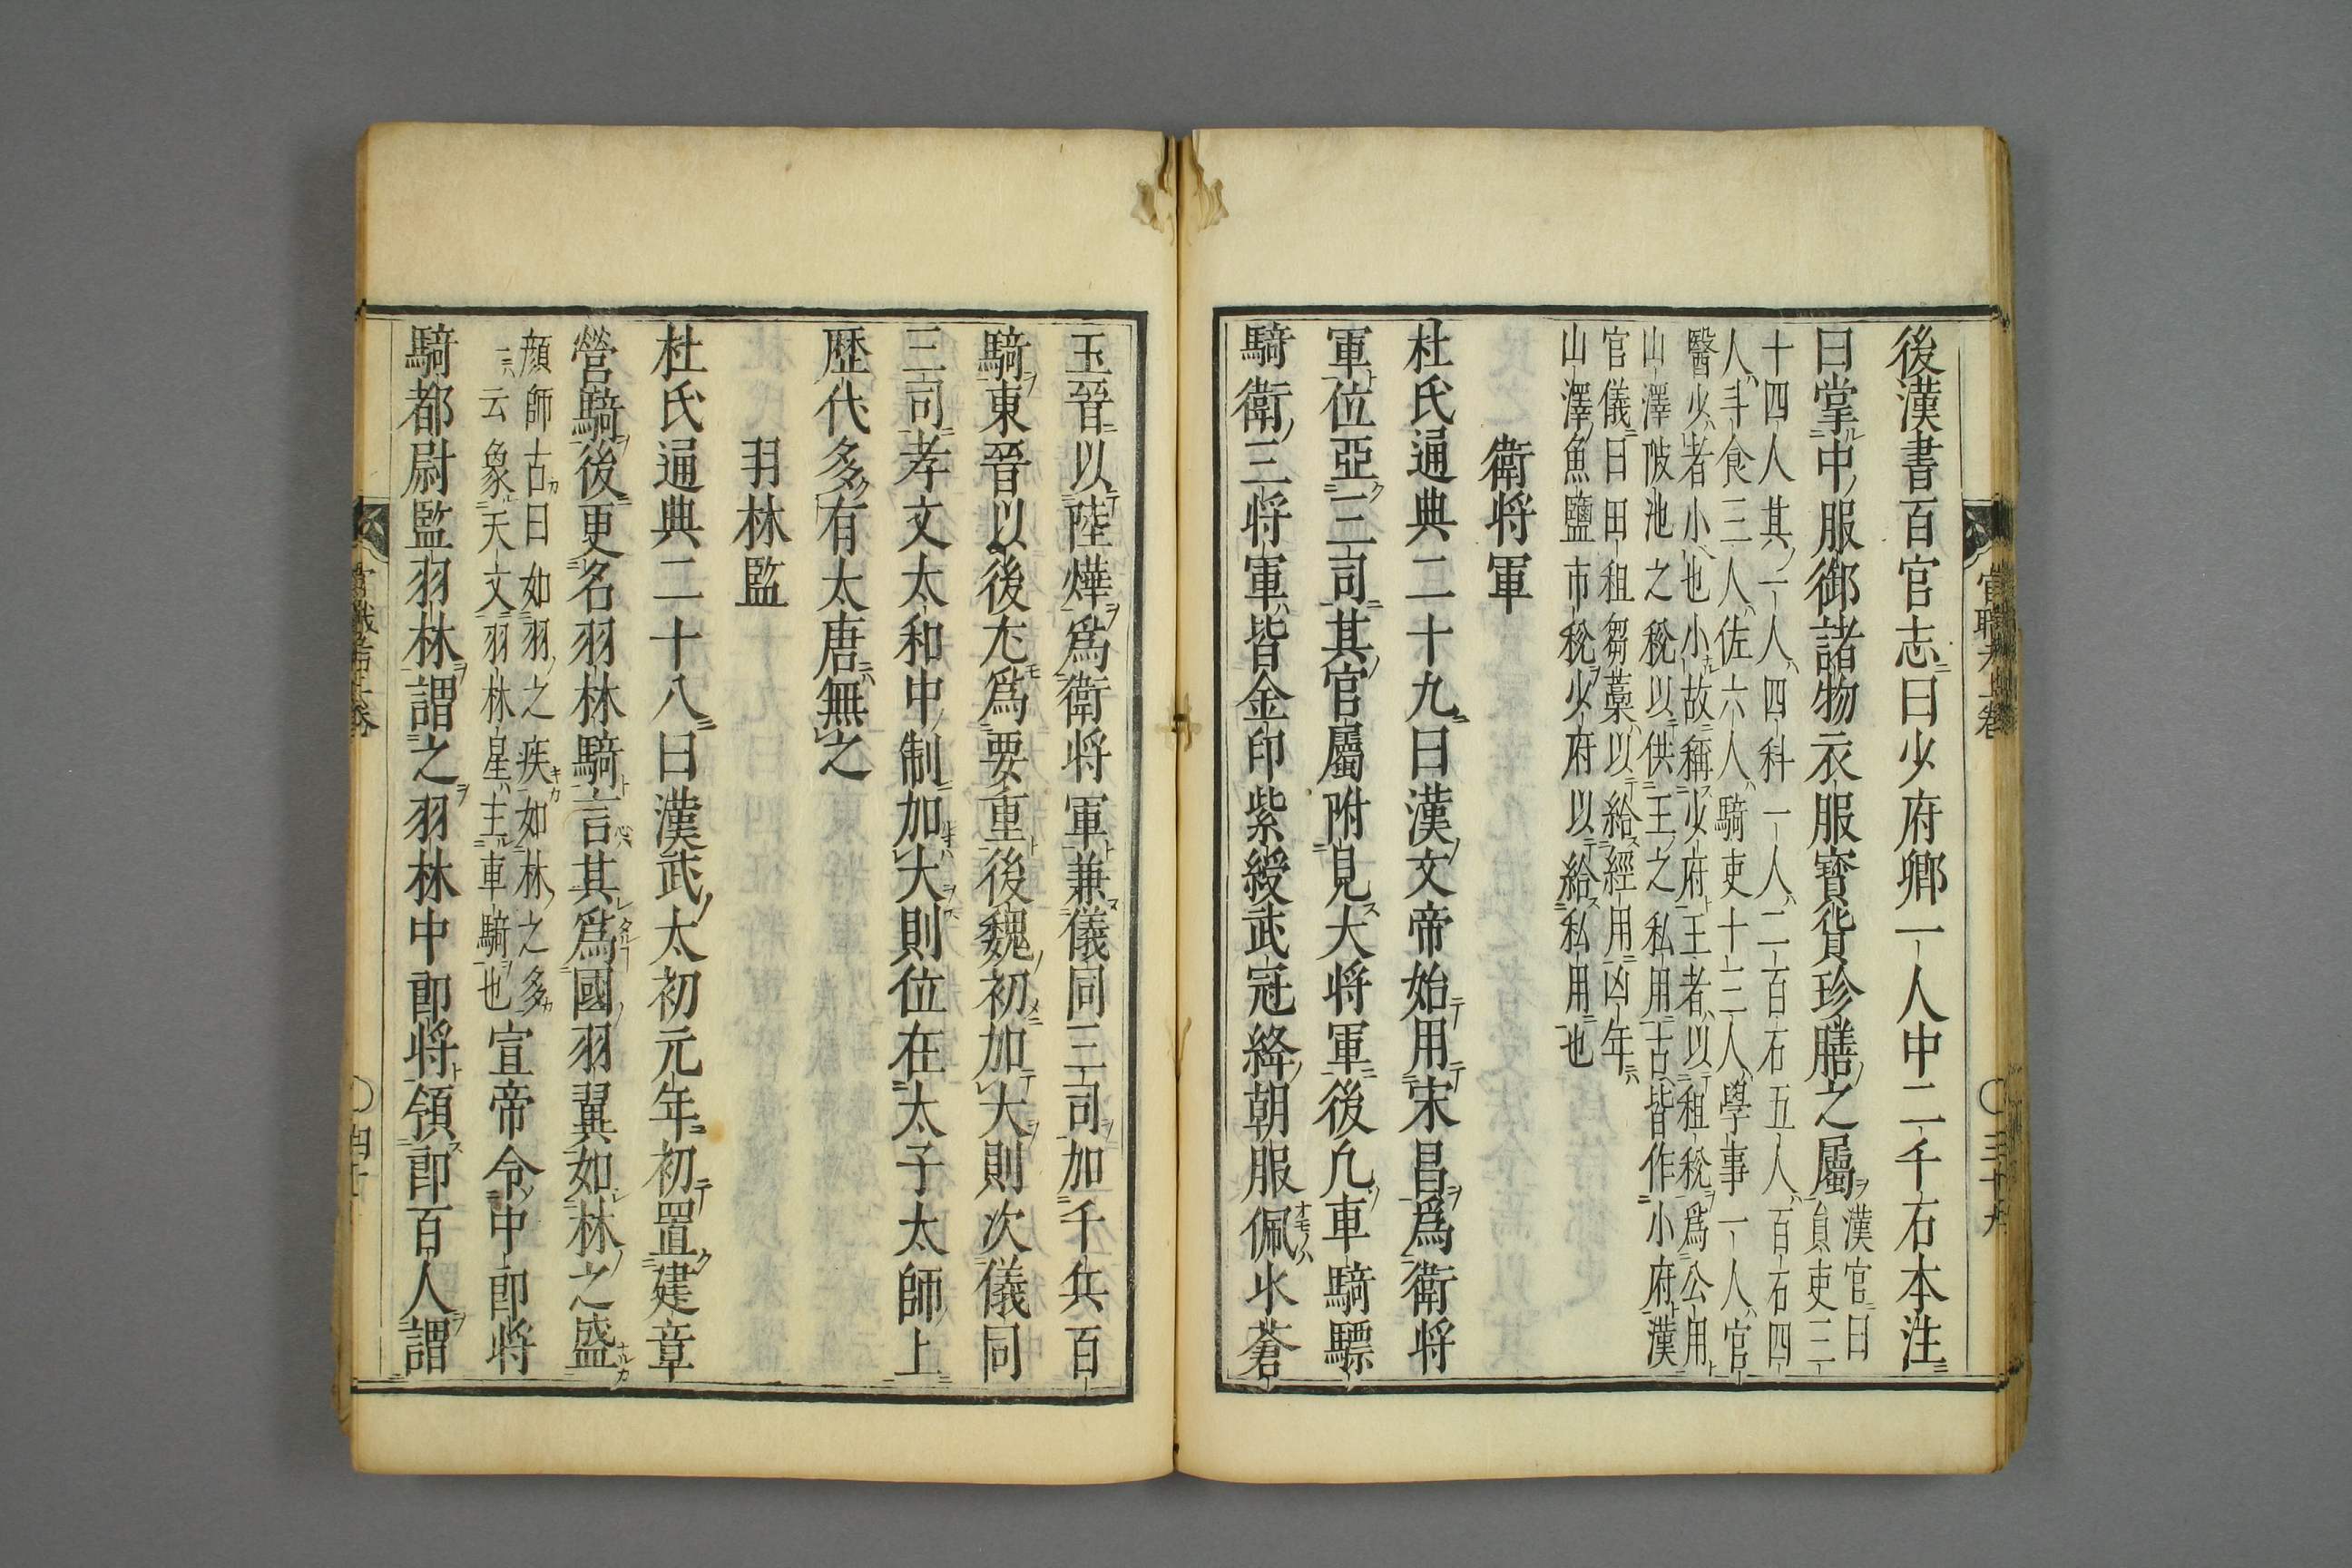 後漢書百官志曰少府卿一人中二千石本注
曰掌中服御諸物衣服寳貨珍膳之屬
漢官曰
貟吏三
十四人其一人四科一人二百石五人百石四
人斗食三人佐六人騎吏十三人學事一人官
醫少者小也小故稱少府王者以租稅爲公用
山澤陂池之稅以供王之私用古皆作小府漢
官儀曰田租芻藁以給經用凶年
山澤魚鹽市稅少府以給私用也
衛将軍
杜氏通典二十九曰漢文帝始用宋昌爲衛将
軍位亞三司其官屬附見大将軍後凢車騎驃
騎衛三将軍皆金印紫綬武冠絳朝服佩水蒼
玉晉以陸燁爲衛将軍兼儀同三司加千兵百
騎東晉以後尤爲要重後魏初加大則次儀同
三司孝文太和中制加大則位在太子太師上
歴代多有太唐無之
羽林監
杜氏通典二十八曰漢武太初元年初置建章
營騎後更名羽林騎言其爲國羽翼如林之盛
顔師古曰如羽之疾如林之多
一云象天文羽林星主車騎也
宣帝令中郎将
騎都尉監羽林謂之羽林中郎将領郎百人謂